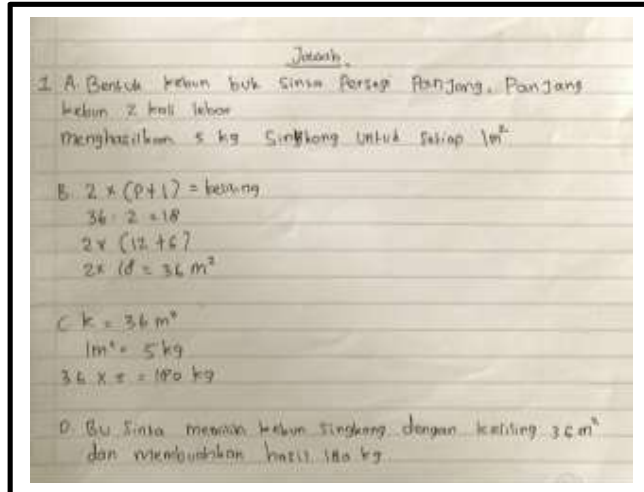 Jawab.
1 A. Bentuk kebun buk Sinta Persegi Panjang. Panjang
kebun 2 kali lebar
menghasilkan 5 kg Singkong untuk Setiap 1m²
B. 2 x (P+l) =
36 : 2 = 18
2 x (12 + 6)
2 x 18 = 36 m²
C. k = 36 m²
1m² = 5 kg
36 x 5 = 180 kg
D. Bu Sinta kebun Singkong dengan keliling 36 m²
dan membuahkan hasil 180 kg